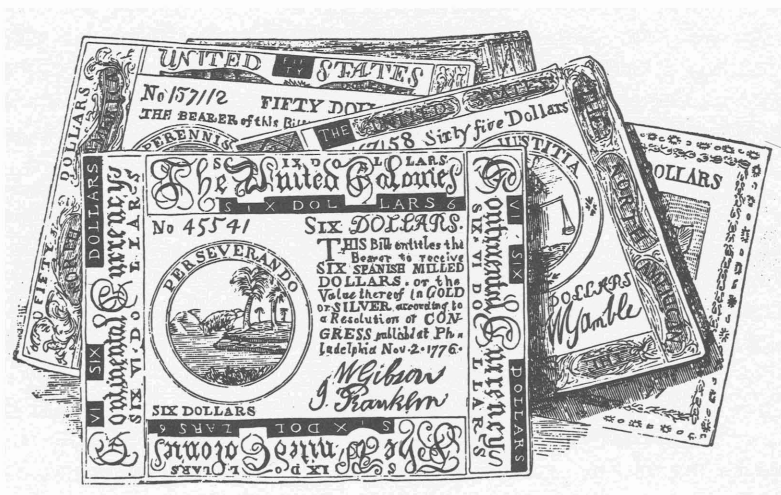 UNITED FIFTY STATES
No 157112 FIFTY DOLL
THE BEARER of this Bill
PERENNIS
DOLLARS
FIFTY
THE UNITED STATES
7158 Sixty five Dollars
JUSTITIA
NORTH
DOLLARS
W Gamble
DOLLARS
SIX DOLLARS
The United Colonies
SIX DOLLARS 6
No 45541 SIX DOLLARS.
THIS Bill entitles the
Bearer to receive
SIX SPANISH MILLED
DOLLARS, or the
Value thereof in GOLD
or SILVER according to
a Resolution of CON-
GRESS publishd at Ph-
ladelphia Nov. 2. 1776.
PERSEVERANDO
W Gibson
J Franklin
SIX DOLLARS
SIX DOLLARS 6
The United Colonies
SIX DOLLARS
Continental Currency
SIX. VI DOLLARS
VI SIX DOLLARS
Continental Currency
SIX. VI DOLLARS
VI SIX DOLLARS